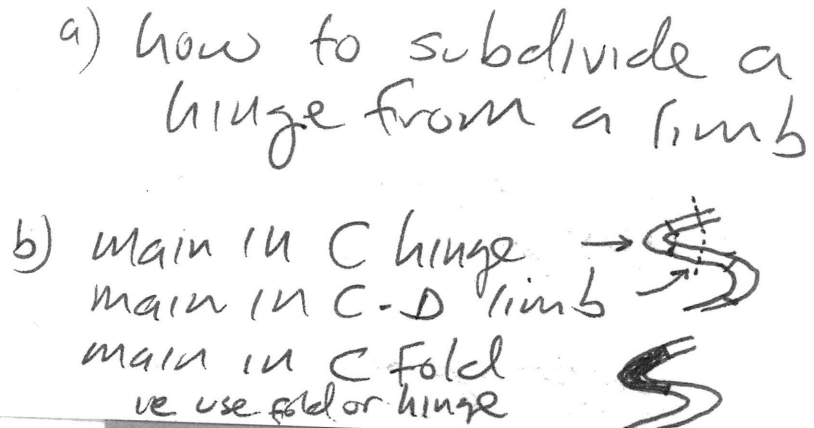 a) how to subdivide a
hinge from a limb
b) main in C hinge
main in C-D limb
main in C Fold
ve use fold or hinge